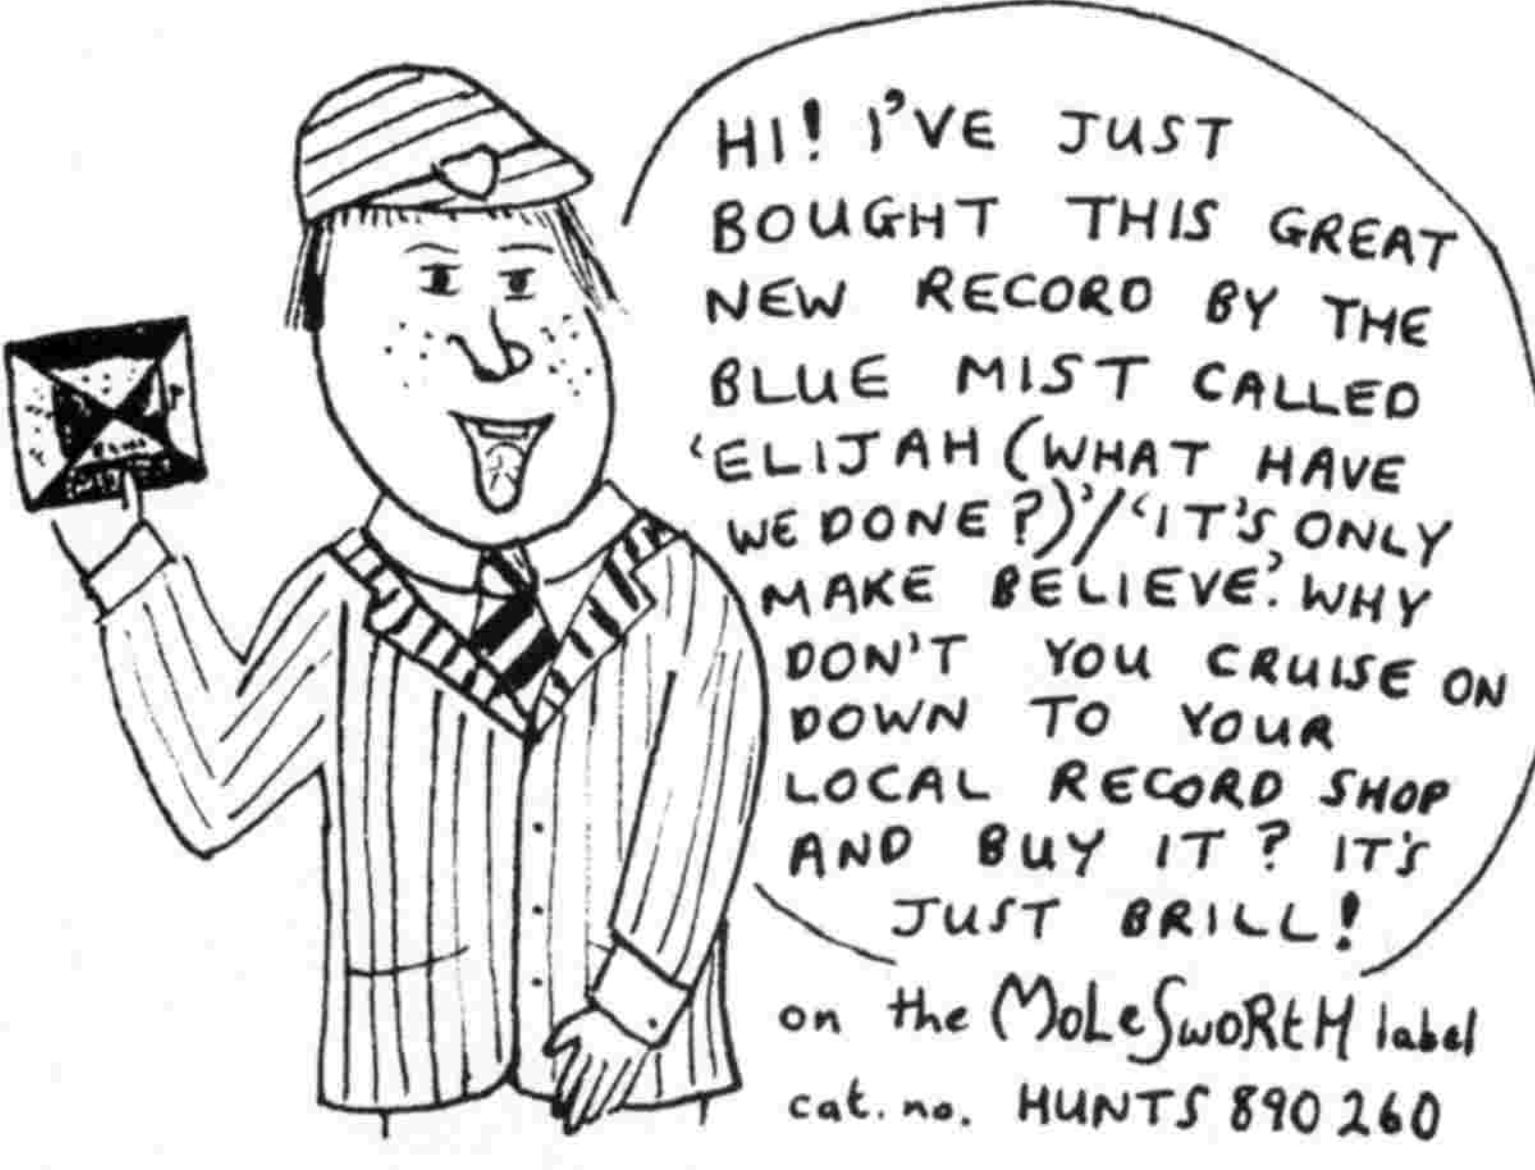 HI! I'VE JUST
BOUGHT THIS GREAT
NEW RECORD BY THE
BLUE MIST CALLED
'ELIJAH (WHAT HAVE
WE DONE?)'/'IT'S ONLY
MAKE BELIEVE'. WHY
DON'T YOU CRUISE ON
DOWN TO YOUR
LOCAL RECORD SHOP
AND BUY IT? IT'S
JUST BRILL!
on the MOLeSwoRtH label
cat. no. HUNTS 890260